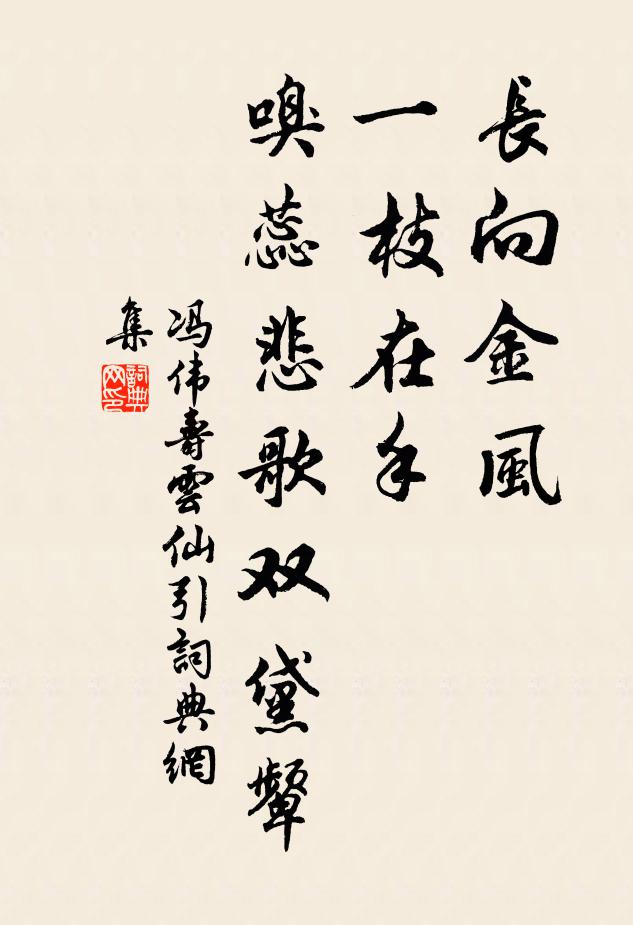 長向金風
一枝在手
嗅蕊悲歌双黛顰
冯伟壽雲仙引詞典網
集
詞典网印